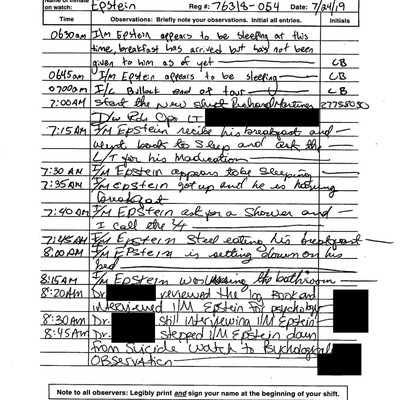 Name of Inmate
on watch: Epstein Reg #: 76318-054 Date: 7/24/19
Time Observations: Briefly note your observations. Initial all entries. Initials
0630am I/m Epstein appears to be sleeping at this
time, breakfast has arrived but has not been
given to him as of yet CB
0645am I/m Epstein appears to be sleeping CB
0700am I/c Bullock end of tour CB
7:00AM Start the new shift
I/w Ops LT
7:15AM I/M Epstein recive his breakfast and
went back to sleep and ask the
L/T for his Madication
7:30 AM I/M Epstein appears to be Sleeping
7:35AM I/M Epstein got up and he is having
breakfast
7:40AM I/M Epstein ask for a Shower and
I call the 3/4
7:45AM I/M Epstein Steel eating his breakfast
8:00AM I/M Epstein is setting down on his
bed
8:15AM I/M Epstein was using the bathroom
8:20AM Dr. reviewed the log Book and
interviewed I/M Epstein for psychology
8:30AM Dr. still interviewing I/M Epstein
8:45AM Dr. stepped I/M Epstein down
from Suicide Watch to Psychological
OBSERvation
Note to all observers: Legibly print and sign your name at the beginning of your shift.